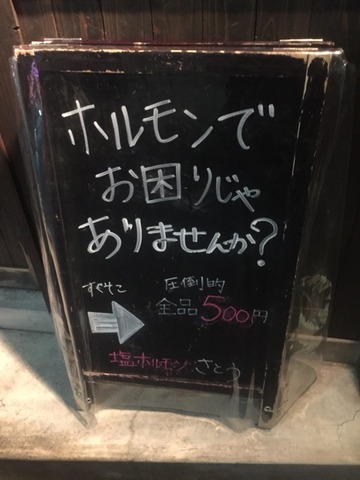 ホルモンで
お困りじゃ
ありませんか?
すぐそこ
圧倒的
全品500円
塩ホルモン さとう